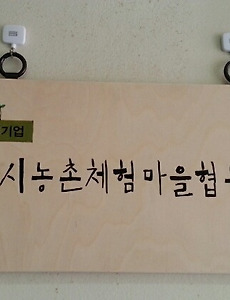 기업
시농촌체험마을협